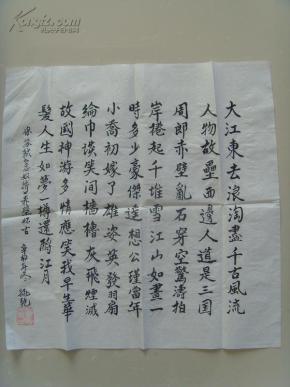 大江東去浪淘盡千古風流
人物故壘西邊人道是三国
周郎赤壁亂石穿空驚濤拍
岸捲起千堆雪江山如畫一
時多少豪傑遥想公瑾當年
小喬初嫁了雄姿英發羽扇
綸巾談笑间檣櫓灰飛煙滅
故國神游多情應笑我早生華
髮人生如夢一樽還酹江月